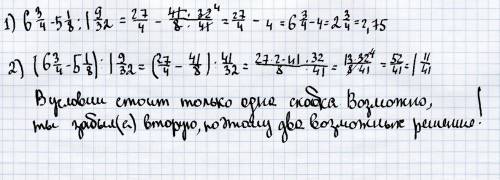 1) 6 3/4 - 5 1/8 : 1 9/32 = 27/4 - 41 · 32 4/8 · 41 = 27/4 - 4 = 6 3/4 - 4 = 2 3/4 = 2,75
2) (6 3/4 - 5 1/8) : 1 9/32 = (27/4 - 41/8) : 41/32 = 27·2-41/8 · 32/41 = 13 · 32 4/8 · 41 = 52/41 = 1 11/41
В условии стоит только одна скобка Возможно,
ты забыл(а) вторую, поэтому два возможных решение.